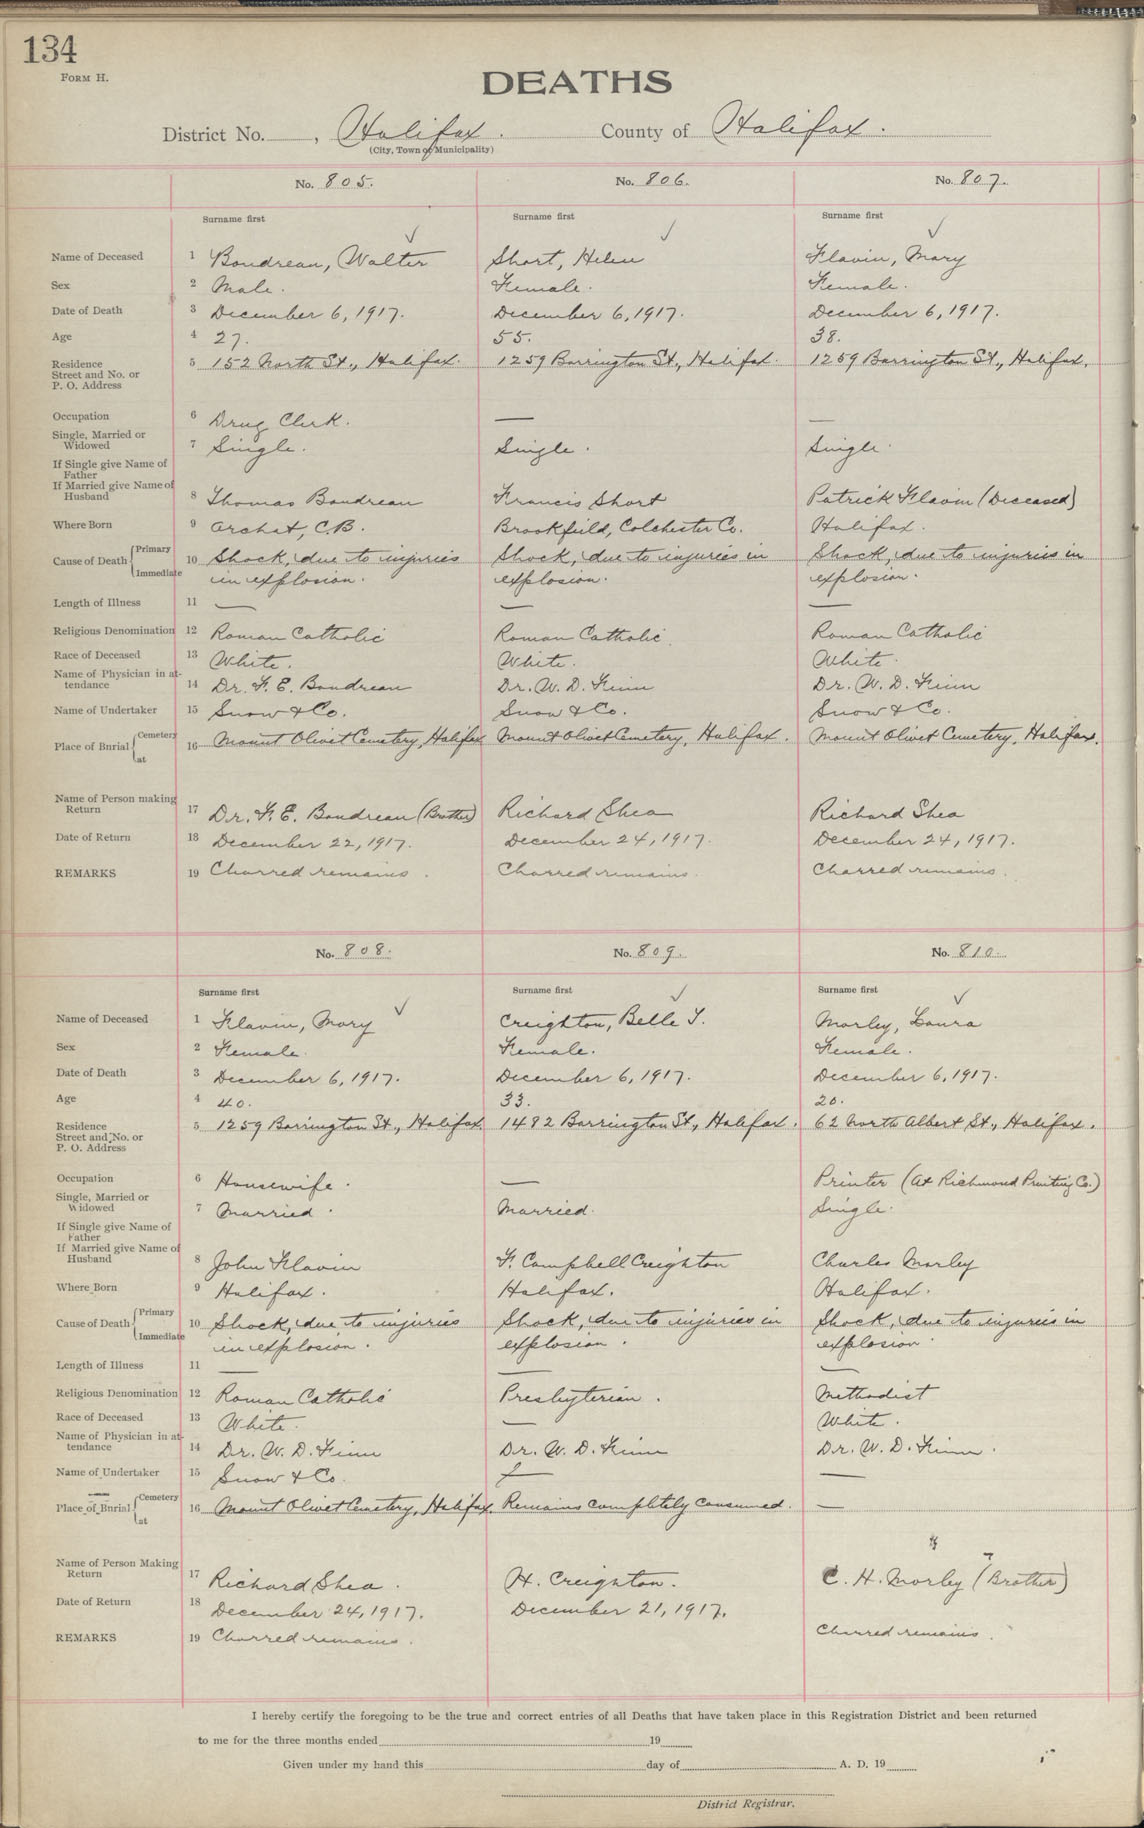 134
FORM H.
DEATHS
District No. , Halifax. County of Halifax.
(City, Town or Municipality)
No. 805. No. 806. No. 807.
Surname first Surname first Surname first
Name of Deceased 1 Boudreau, Walter Short, Helen Flavin, Mary
Sex 2 Male. Female. Female.
Date of Death 3 December 6, 1917. December 6, 1917. December 6, 1917.
Age 4 27. 55. 38.
Residence 5 152 North St., Halifax. 1259 Barrington St., Halifax. 1259 Barrington St., Halifax.
Street and No. or
P. O. Address
Occupation 6 Drug Clerk. — —
Single, Married or
Widowed 7 Single. Single. Single.
If Single give Name of
Father
If Married give Name of
Husband 8 Thomas Boudreau Francis Short Patrick Flavin (Deceased)
Where Born 9 Arichat, C.B. Brookfield, Colchester Co. Halifax.
Cause of Death { Primary 10 Shock, due to injuries Shock, due to injuries in Shock, due to injuries in
Immediate in explosion. explosion. explosion.
Length of Illness 11 — — —
Religious Denomination 12 Roman Catholic Roman Catholic Roman Catholic
Race of Deceased 13 White. White. White.
Name of Physician in at-
tendance 14 Dr. F. E. Boudreau Dr. W. D. Finn Dr. W. D. Finn
Name of Undertaker 15 Snow & Co. Snow & Co. Snow & Co.
Place of Burial { Cemetery 16 Mount Olivet Cemetery, Halifax Mount Olivet Cemetery, Halifax. Mount Olivet Cemetery, Halifax.
at
Name of Person making
Return 17 Dr. F. E. Boudreau (Brother) Richard Shea Richard Shea
Date of Return 18 December 22, 1917. December 24, 1917. December 24, 1917.
REMARKS 19 Charred remains. Charred remains. Charred remains.
No. 808. No. 809. No. 810.
Surname first Surname first Surname first
Name of Deceased 1 Flavin, Mary Creighton, Belle I. Morley, Laura
Sex 2 Female. Female. Female.
Date of Death 3 December 6, 1917. December 6, 1917. December 6, 1917.
Age 4 40. 33. 20.
Residence 5 1259 Barrington St., Halifax. 1492 Barrington St., Halifax. 62 North Albert St., Halifax.
Street and No. or
P. O. Address
Occupation 6 Housewife. — Printer (at Richmond Printing Co.)
Single, Married or
Widowed 7 Married. Married. Single.
If Single give Name of
Father
If Married give Name of
Husband 8 John Flavin F. Campbell Creighton Charles Morley
Where Born 9 Halifax. Halifax. Halifax.
Cause of Death { Primary 10 Shock, due to injuries Shock, due to injuries in Shock, due to injuries in
Immediate in explosion. explosion. explosion.
Length of Illness 11 — — —
Religious Denomination 12 Roman Catholic Presbyterian. Methodist
Race of Deceased 13 White. — White.
Name of Physician in at-
tendance 14 Dr. W. D. Finn Dr. W. D. Finn Dr. W. D. Finn.
Name of Undertaker 15 Snow & Co. — —
Place of Burial { Cemetery 16 Mount Olivet Cemetery, Halifax. Remains completely consumed. —
at
Name of Person Making
Return 17 Richard Shea. H. Creighton. C. H. Morley (Brother)
Date of Return 18 December 24, 1917. December 21, 1917.
REMARKS 19 Charred remains. Charred remains.
I hereby certify the foregoing to be the true and correct entries of all Deaths that have taken place in this Registration District and been returned
to me for the three months ended 19
Given under my hand this day of A. D. 19
District Registrar.